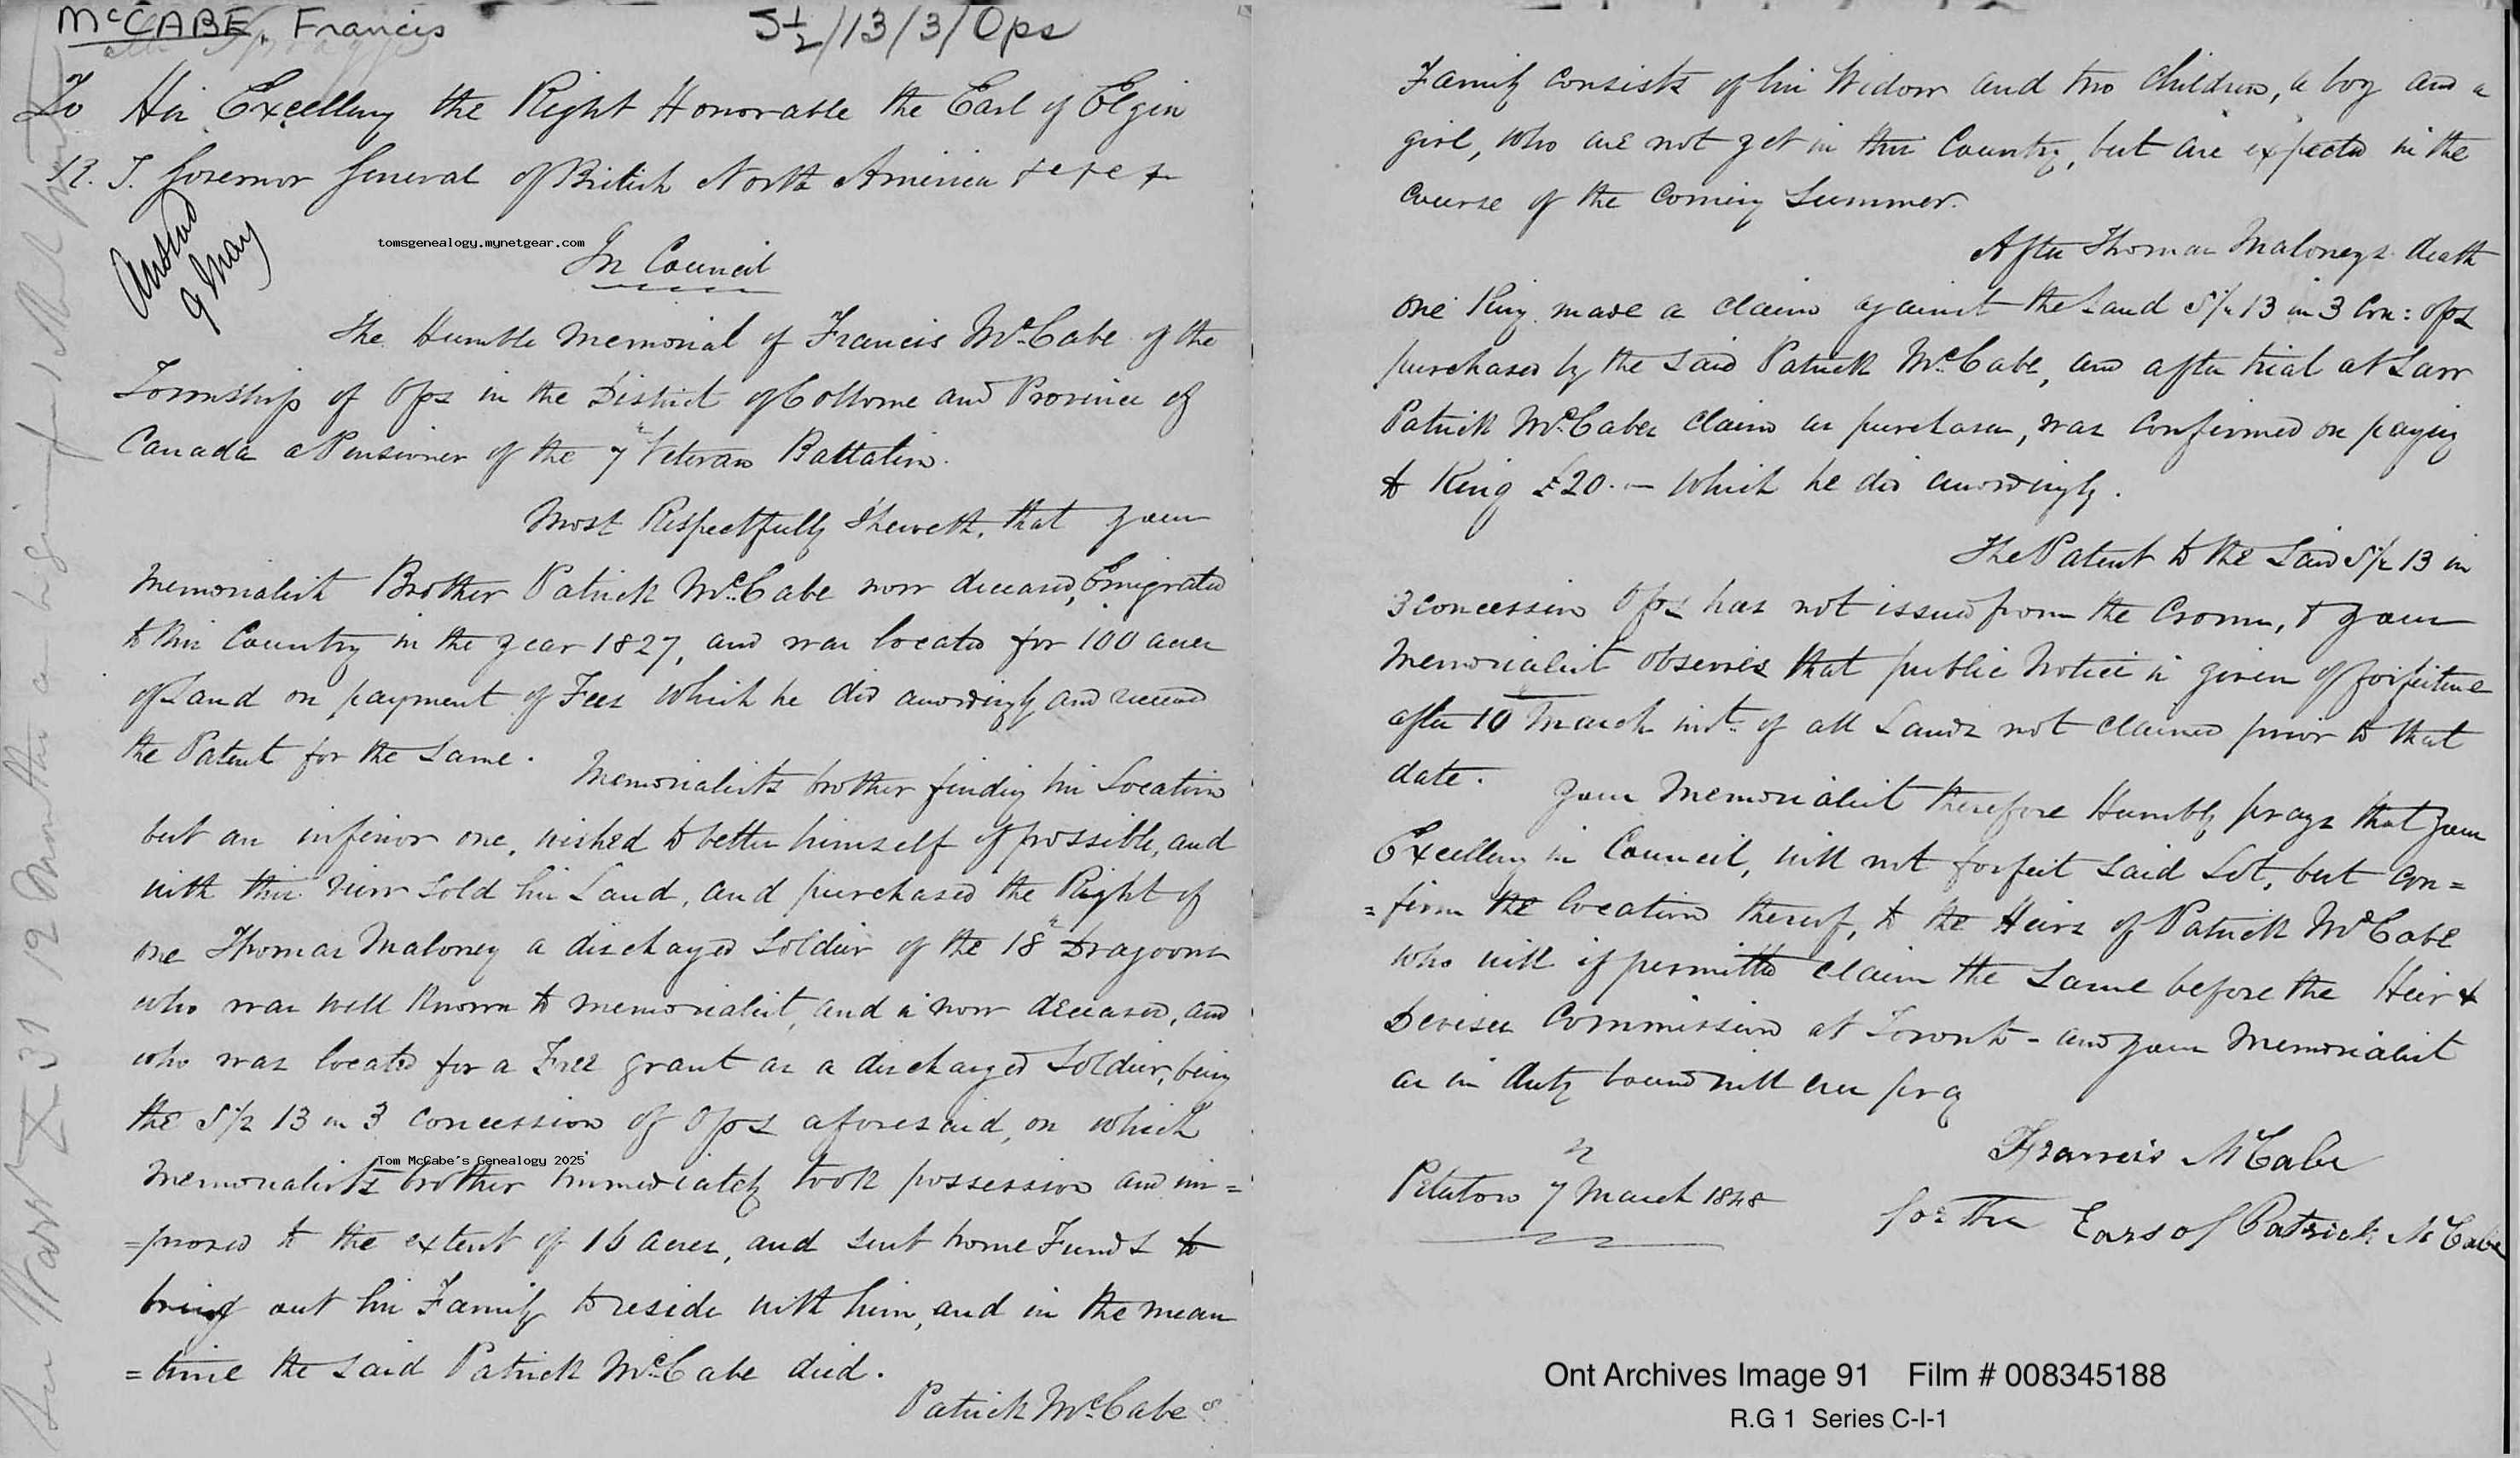 McCABE, Francis
S½/13/3/Ops
To His Excellency the Right Honorable the Earl of Elgin
K. T. Governor General of British North America &c &c &
Answd
9 May
tomsgenealogy.mynetgear.com
In Council
The Humble Memorial of Francis McCabe of the
Township of Ops in the District of Colborne and Province of
Canada a Pensioner of the 7th Veteran Battalion.
Most Respectfully Sheweth, that your
Memorialist Brother Patrick McCabe now deceased, Emigrated
to this Country in the year 1827, and was located for 100 acres
of Land on payment of Fees which he did accordingly and received
the Patent for the Same.
Memorialists brother finding his Location
but an inferior one, wished to better himself if possible, and
with this view sold his Land, and purchased the Right of
one Thomas Maloney a discharged Soldier of the 18th Dragoons
who was well Known to memorialist, and is now deceased, and
who was located for a Free grant as a discharged Soldier, being
the S½ 13 in 3 concession of Ops aforesaid, on which
Tom McCabe's Genealogy 2025
Memorialists brother immediately took possession and im=
=proved to the extent of 16 acres, and sent home Funds to
bring out his Family to reside with him, and in the mean
=time the said Patrick McCabe died.
Patrick McCabes
12 Months
Family consists of his Widow and two Children, a boy and a
girl, who are not yet in this Country, but are expected in the
course of the coming Summer.
After Thomas Maloneys death
one King made a claim against the Land S½ 13 in 3 Con: Ops
purchased by the said Patrick McCabe, and after trial at Law
Patrick McCabes claim as purchaser, was confirmed on paying
to King £20.— which he did accordingly.
The Patent to the Said S½ 13 in
3 concession Ops has not issued from the Crown, & your
Memorialist observes that public Notice is given of forfeiture
after 10th March inst. of all Lands not claimed prior to that
date.
Your Memorialist therefore Humbly prays that your
Excellency in Council, will not forfeit said Lot, but con=
=firm the location thereof, to the Heirs of Patrick McCabe
who will if permitted claim the Same before the Heir &
Devisee Commission at Toronto - and your Memorialist
as in duty bound will ever pray
Francis McCabe
for The Ears of Patrick McCabe
7th March 1848
Ont Archives Image 91 Film # 008345188
R.G 1 Series C-I-1